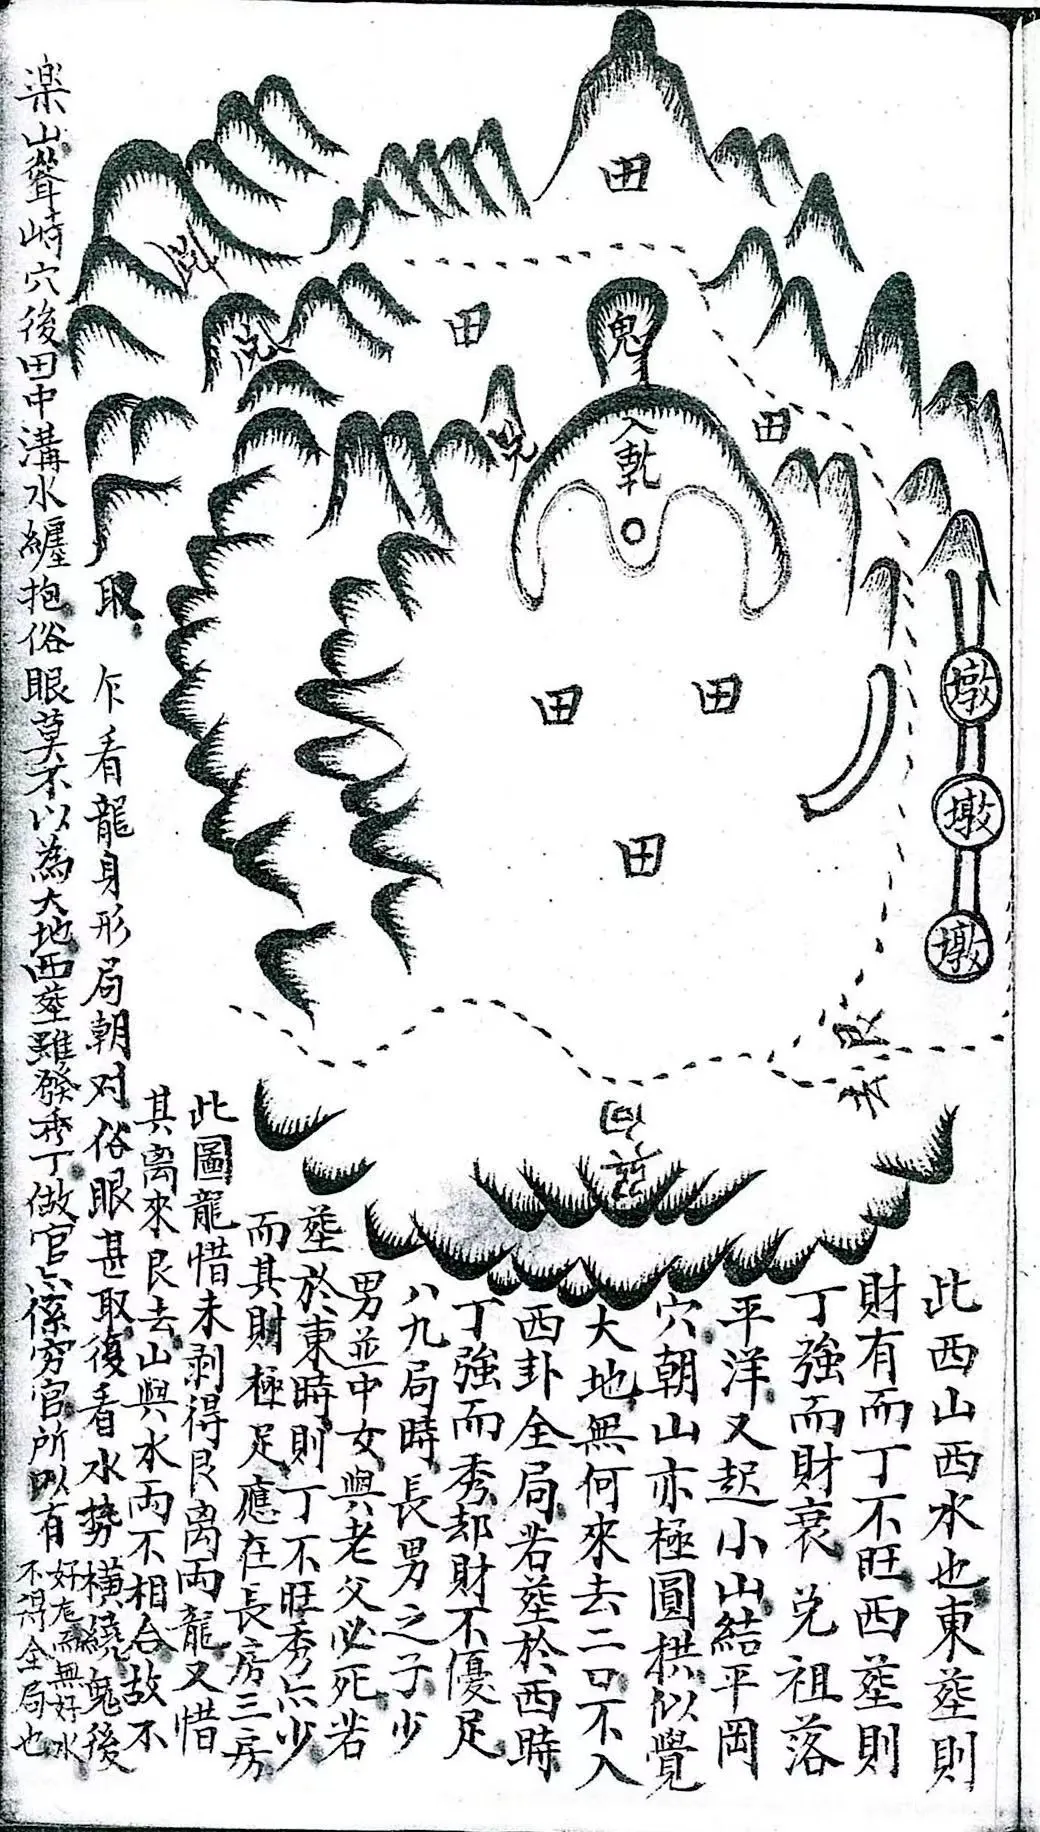 此西山西水也東塟則
財有而丁不旺西塟則
丁強而財衰兌祖落
平洋又起小山結平岡
穴朝山亦極圓拱似覺
大地無何來去二口不入
西卦全局若塟於西時
丁強而秀却財不優足
八九局時長男之子少
男並中女與老父必死若
塟於東時則丁不旺秀亦少
而其財極足應在長房三房
此圖龍惜未剥得艮离兩龍又惜
其离來艮去山與水兩不相合故不
取
乍看龍身形局朝对俗眼甚取復看水勢橫繞䰟後
楽山聳峙穴後田中溝水纏抱俗眼莫不以為大地西塟雖發秀丁做官亦係穷官所以有
好龍而無好水
不得全局也
田
田
鬼
兌
兌
田
入乾
田
田
田
墩
墩
墩